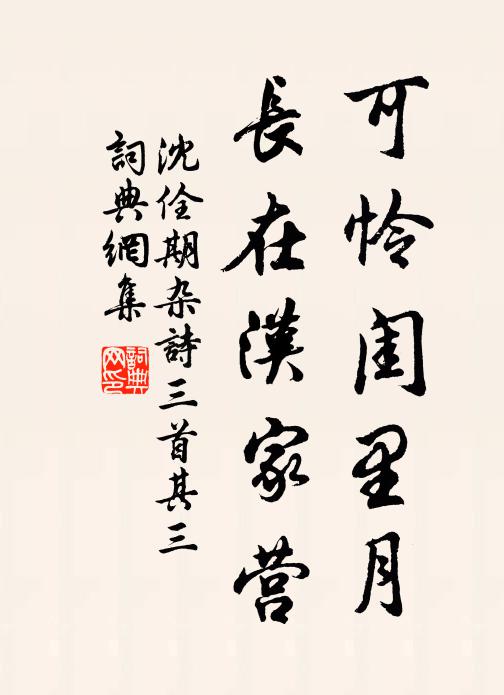 可怜闺里月
長在漢家营
沈佺期杂詩三首其三
詞典網集
詞典网印